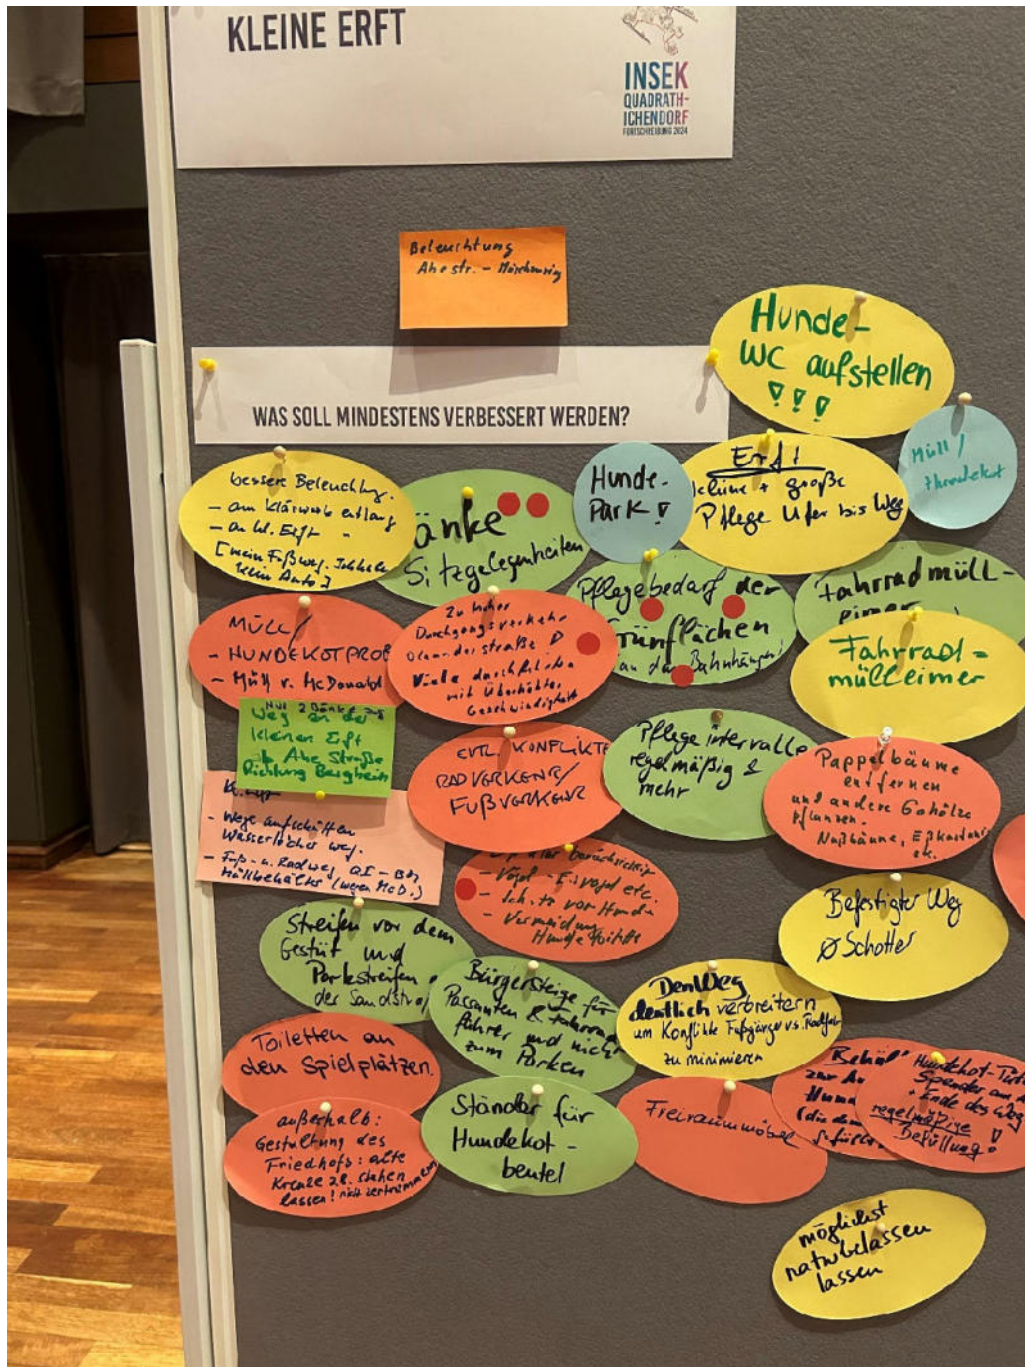 KLEINE ERFT
INSEK
QUADRATH-
ICHENDORF
FORTSCHREIBUNG 2024
Beleuchtung
Ahestr. -
Hunde-
WC aufstellen
!!!
WAS SOLL MINDESTENS VERBESSERT WERDEN?
Müll /
Hundekot
bessere Beleuchtg.
- am Klärwerk entlang
- an kl. Erft "
kein Auto]
änke
Sitzgelegenheiten
Hunde-
Park!
Erft
kleine + große
Pflege Ufer bis Weg
Pflegebedarf der
Grünflächen
an den Bahnhängen!
Fahrradmüll-
eimer
Fahrrad=
mülleimer
MÜLL/
- HUNDEKOTPROB
- Müll v. McDonald
Zu hoher
Durchgangsverkehr
straße!
Viele durchfahrten
mit überhöhter
Geschwindigkeit
Nur 2 Bänke
Weg an der
kleinen Erft
ab Ahe Straße
Richtung Bergheim
EVTL. KONFLIKTE
RADVERKEHR/
FUßVERKEHR
Pflegeintervalle
regelmäßig &
mehr
Pappelbäume
entfernen
und andere Gehölze
pflanzen.
Nußbäume, Eßkastanie
- Wege aufschütten
Wasserlöcher weg.
- Fuß- u. Radweg QI - BM
Müllbehälter (wegen McD.)
- Vögel - Eisvogel etc.
- Schutz vor Hunden
- Vermeidung
Befestigter Weg
Ø Schotter
Streifen vor dem
Gestüt und
Parkstreifen
der Sandstraß
Bürgersteige für
Passanten & Fahrrad
führer und nicht
zum Parken
Den Weg
deutlich verbreitern
um Konflikte Fußgänger vs. Radfahr
zu minimieren
Toiletten an
den Spielplätzen.
Behäl
zur
Hund
Hundekot-Tüten
Spender am
+ Ende des Weg
regelmäßige
Befüllung!
außerhalb:
Gestaltung des
Friedhofs: alte
Kreuze z.B. stehen
lassen! nicht zertrümmern
Ständer für
Hundekot-
beutel
Freiraummöbel
möglichst
naturbelassen
lassen